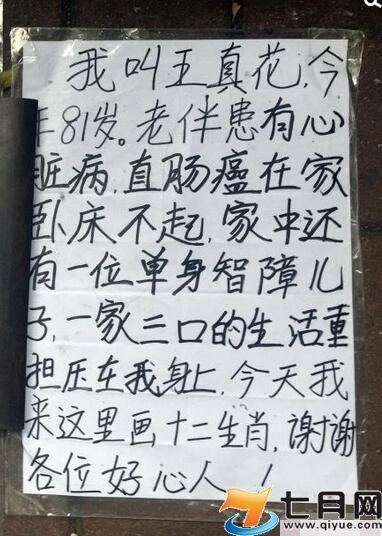 我叫王真花,今
年81岁。老伴患有心
脏病,直肠癌在家
卧床不起,家中还
有一位单身智障儿
子,一家三口的生活重
担压在我身上,今天我
来这里画十二生肖,谢谢
各位好心人!
七月网
www.qiyue.com